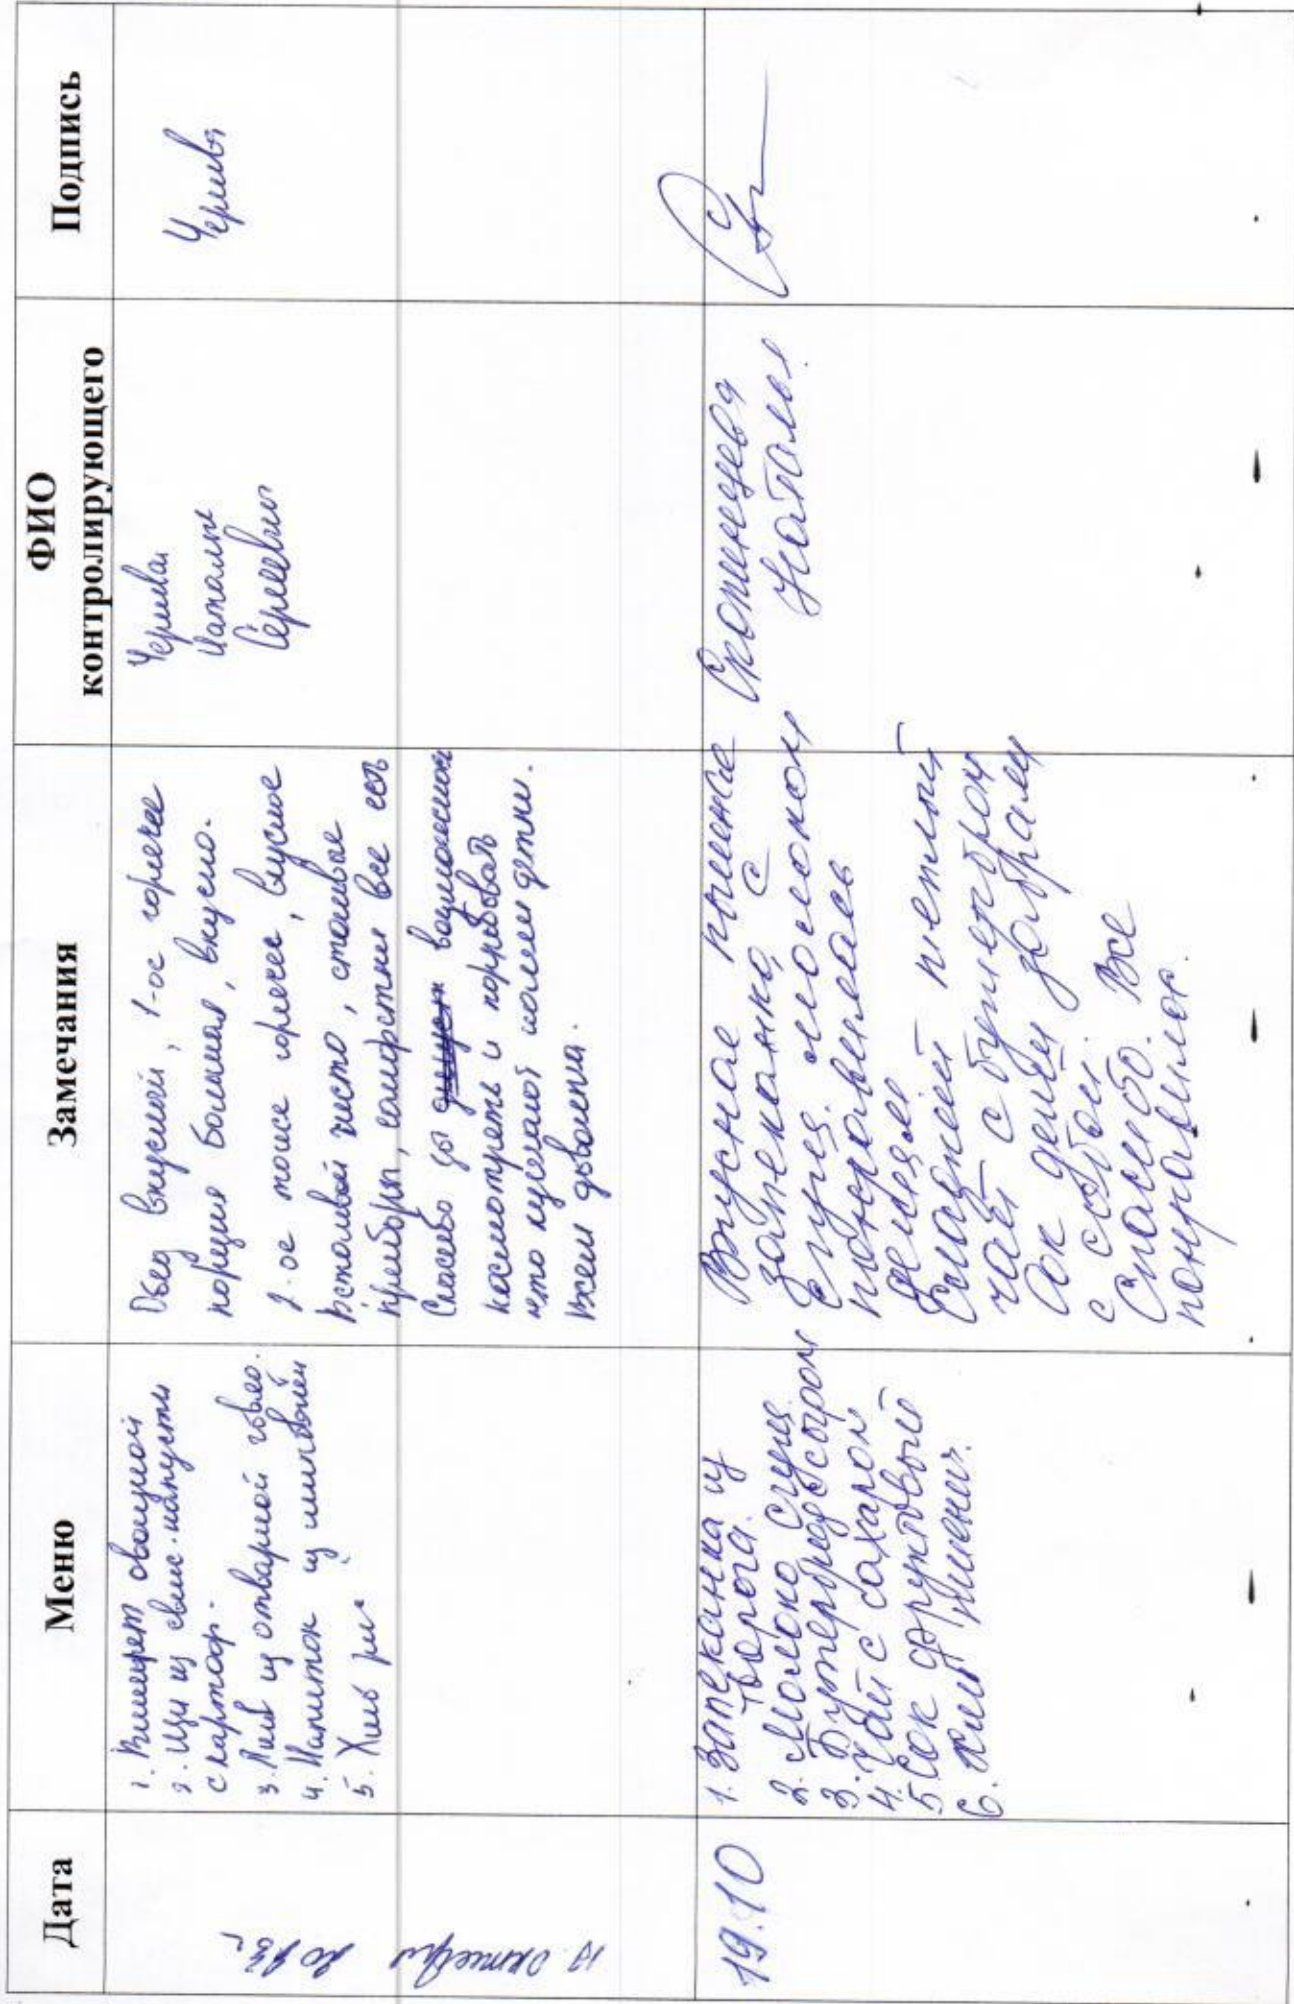 Дата
Меню
Замечания
ФИО
контролирующего
Подпись
октября
1. Винегрет овощной
2. Щи из свеж. капусты
с картоф.
3. из отварной говяд.
4. Напиток из
5. Хлеб рж.
Обед вкусный, 1-ое горячее
порция большая, вкусно.
2-ое тоже горячее, вкусное
В столовой чисто, столовые
приборы, салфетки все есть
Спасибо за возможность
посмотреть и попробовать
что кушают наши детки.
Всем довольны.
Наталья
Сергеевна
19.10
1. Запеканка из
творога.
2. Молоко сгущ.
3. Бутерброд с сыром
4. Чай с сахаром
5. Сок фруктовый
6. Хлеб пшенич.
Вкусная пышная
запеканка, с
сгущ. молоком
понравилась
детям.
Сладкий теплый
чай с бутербродом
Сок дети забрали
с собой.
Спасибо. Все
понравилось.
Наталья